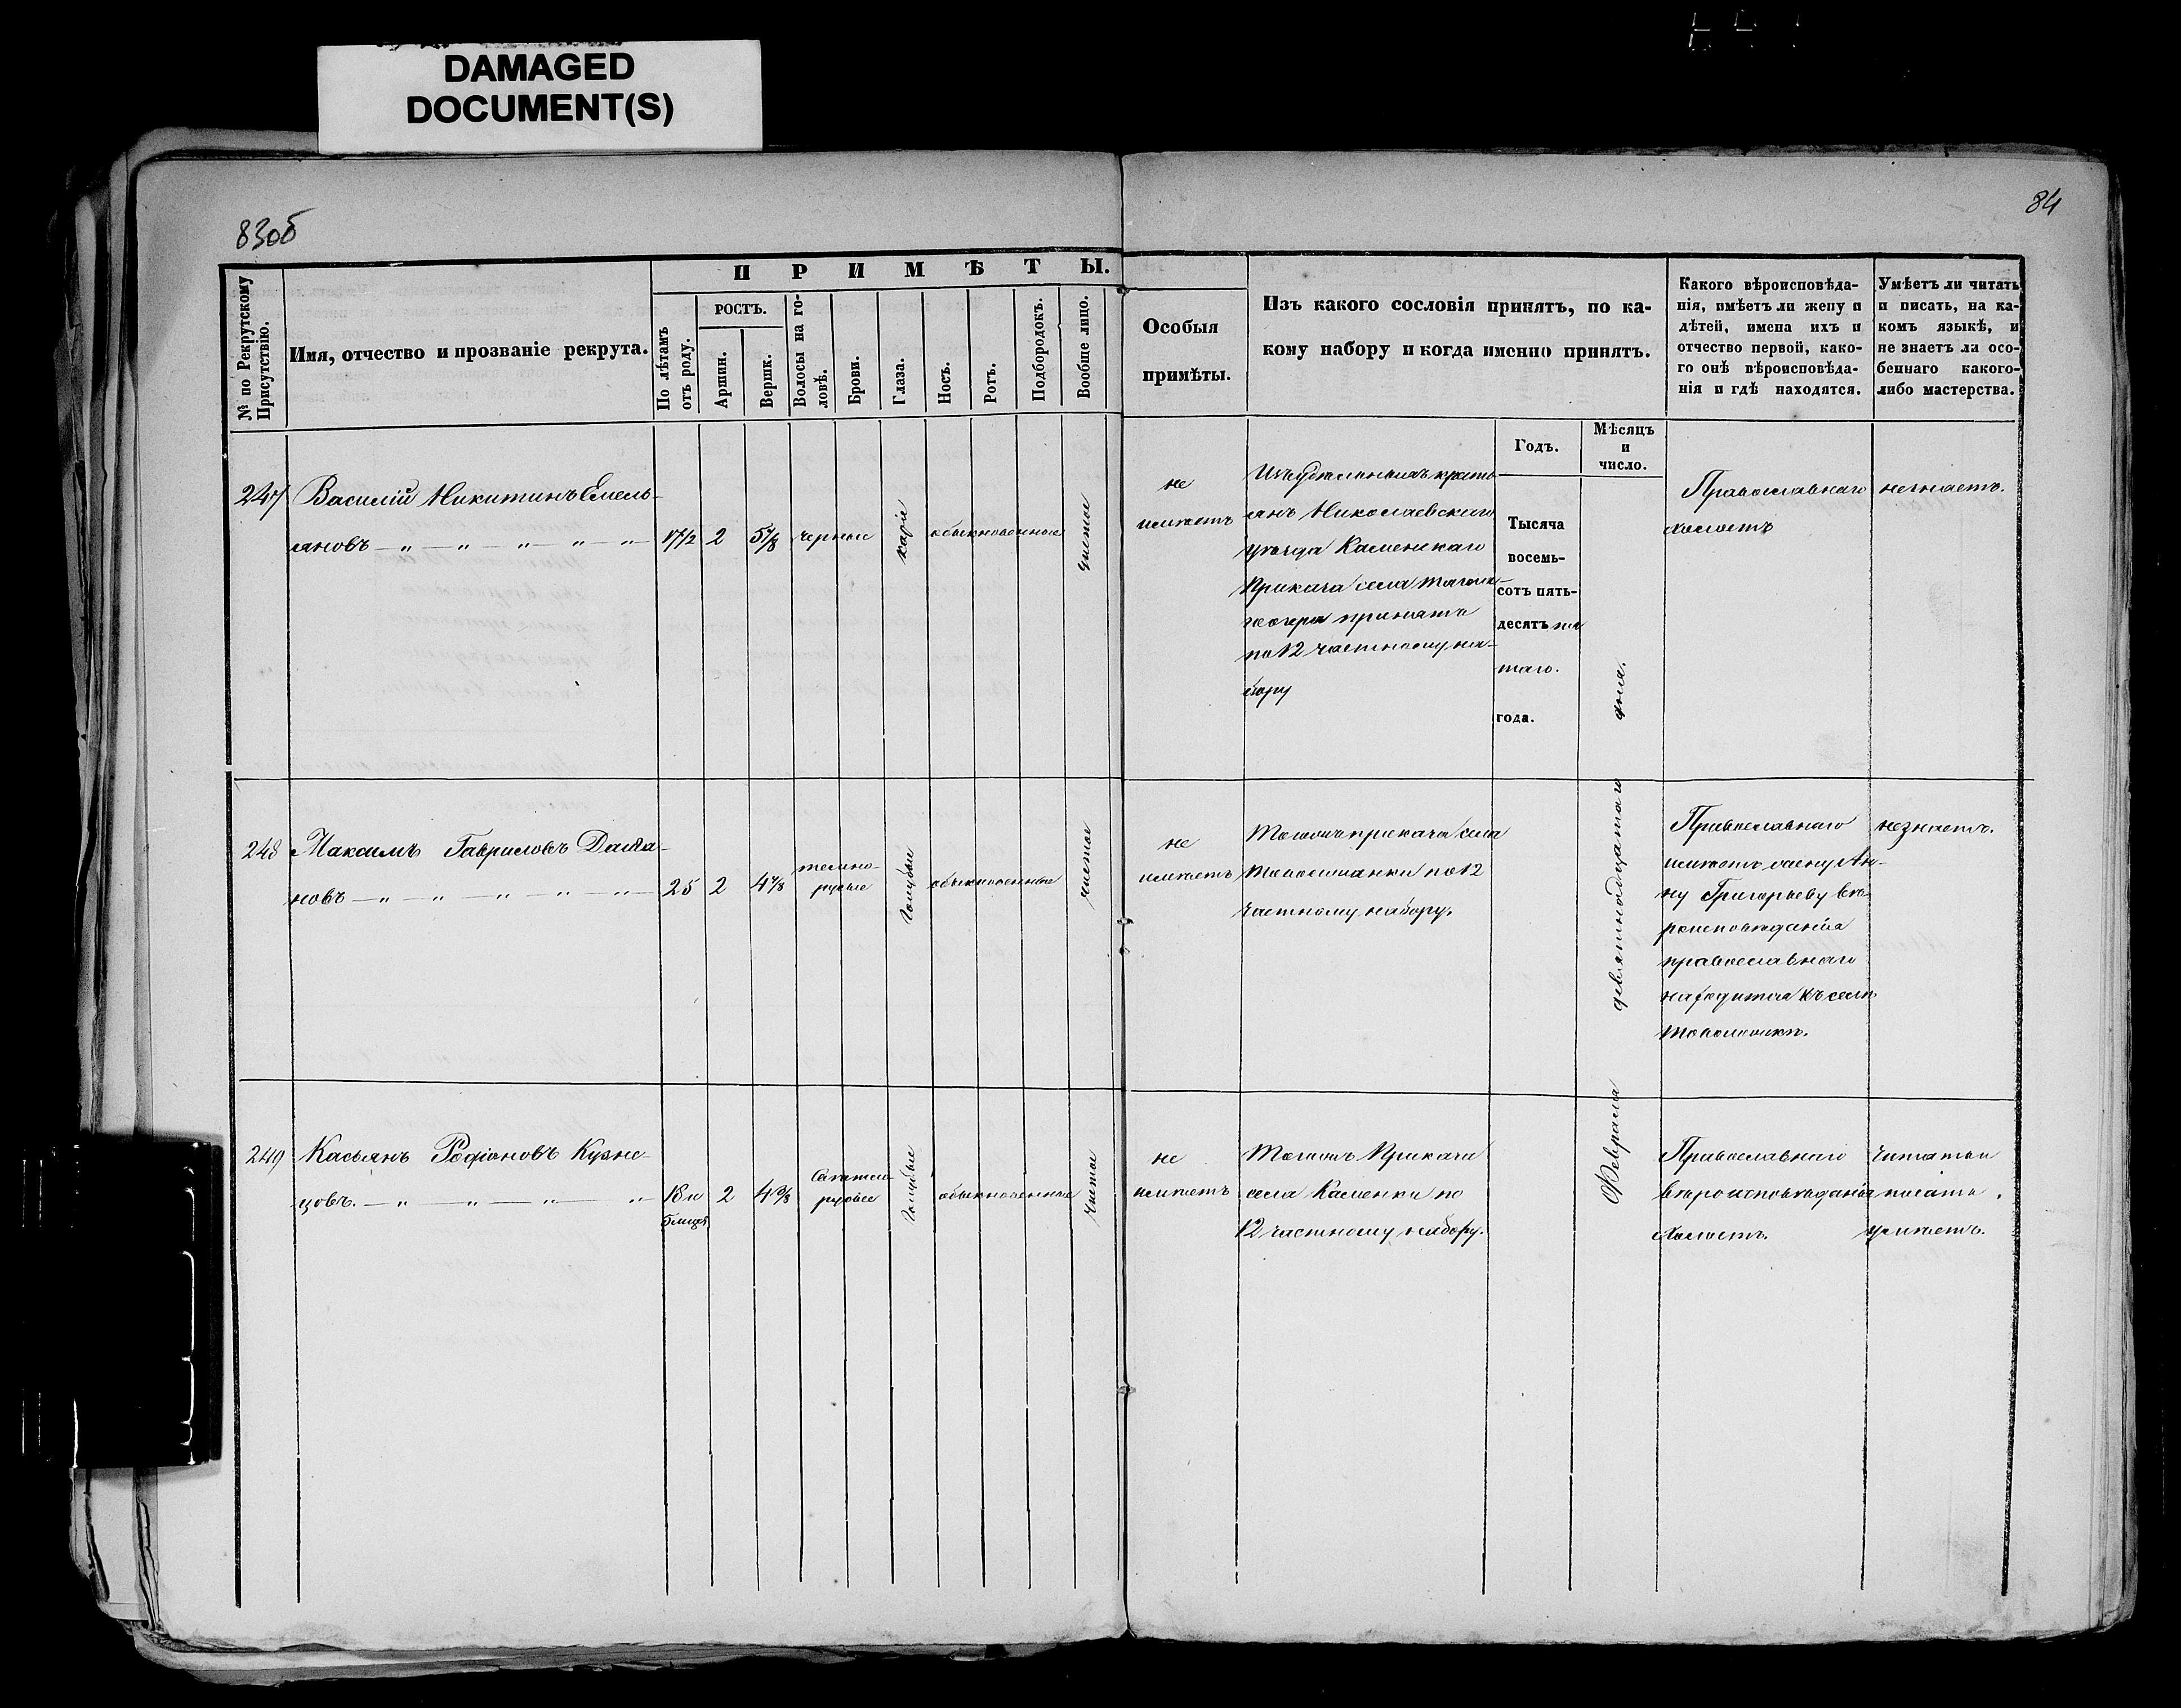 DAMAGED
DOCUMENT(S)
83об
84
№ по Рекрутскому
Присутствію.
Имя, отчество и прозваніе рекрута.
ПРИМѢТЫ.
По лѣтамъ
отъ роду.
РОСТЪ.
Аршин.
Вершк.
Волосы на го-
ловѣ.
Брови.
Глаза.
Носъ.
Ротъ.
Подбородокъ.
Вообще лицо.
Особыя
примѣты.
Изъ какого сословія принятъ, по ка-
кому набору и когда именно принятъ.
Годъ.
Мѣсяцъ
и
число.
Какого вѣроисповѣда-
нія, имѣетъ ли жену и
дѣтей, имена ихъ и
отчество первой, како-
го онѣ вѣроисповѣда-
нія и гдѣ находятся.
Умѣетъ ли читать
и писать, на ка-
комъ языкѣ, и
не знаетъ ли осо-
беннаго какого-
либо мастерства.
247
Василій Никитинъ Емель-
яновъ
17½ 2 5⅞ черные
каріе
обыкновенные
чистое
не
имѣетъ
Изъ удѣльныхъ кресть
янъ Николаевскаго
уѣзда Каменскаго
Приказа села
принятъ
по 12 частному на-
бору
Тысяча
восемь-
сотъ пять-
десятъ пя
таго.
года.
Февраля девятнадцатаго дня.
Православнаго
холостъ
незнаетъ.
248
Максимъ Гавриловъ
новъ
25 2 4⅞
темно-
русые
голубые
обыкновенные
чистое
не
имѣетъ
Тогожъ приказа села
по 12
частному набору.
Православнаго
имѣетъ жену Ан-
ну Григорьеву вѣ-
роисповѣданія
православнаго
находится въ селѣ
незнаетъ.
249
Касьянъ Родіоновъ Кузне-
цовъ.
18 и
5 мѣсяц
2 4⅜
Свѣтло
русые
голубые
обыкновенные
чистое
не
имѣетъ
Тогожъ Приказа
села Каменки по
12 частному набору.
Православнаго
вѣроисповѣданія
Холостъ.
Читать и
писать
умѣетъ.